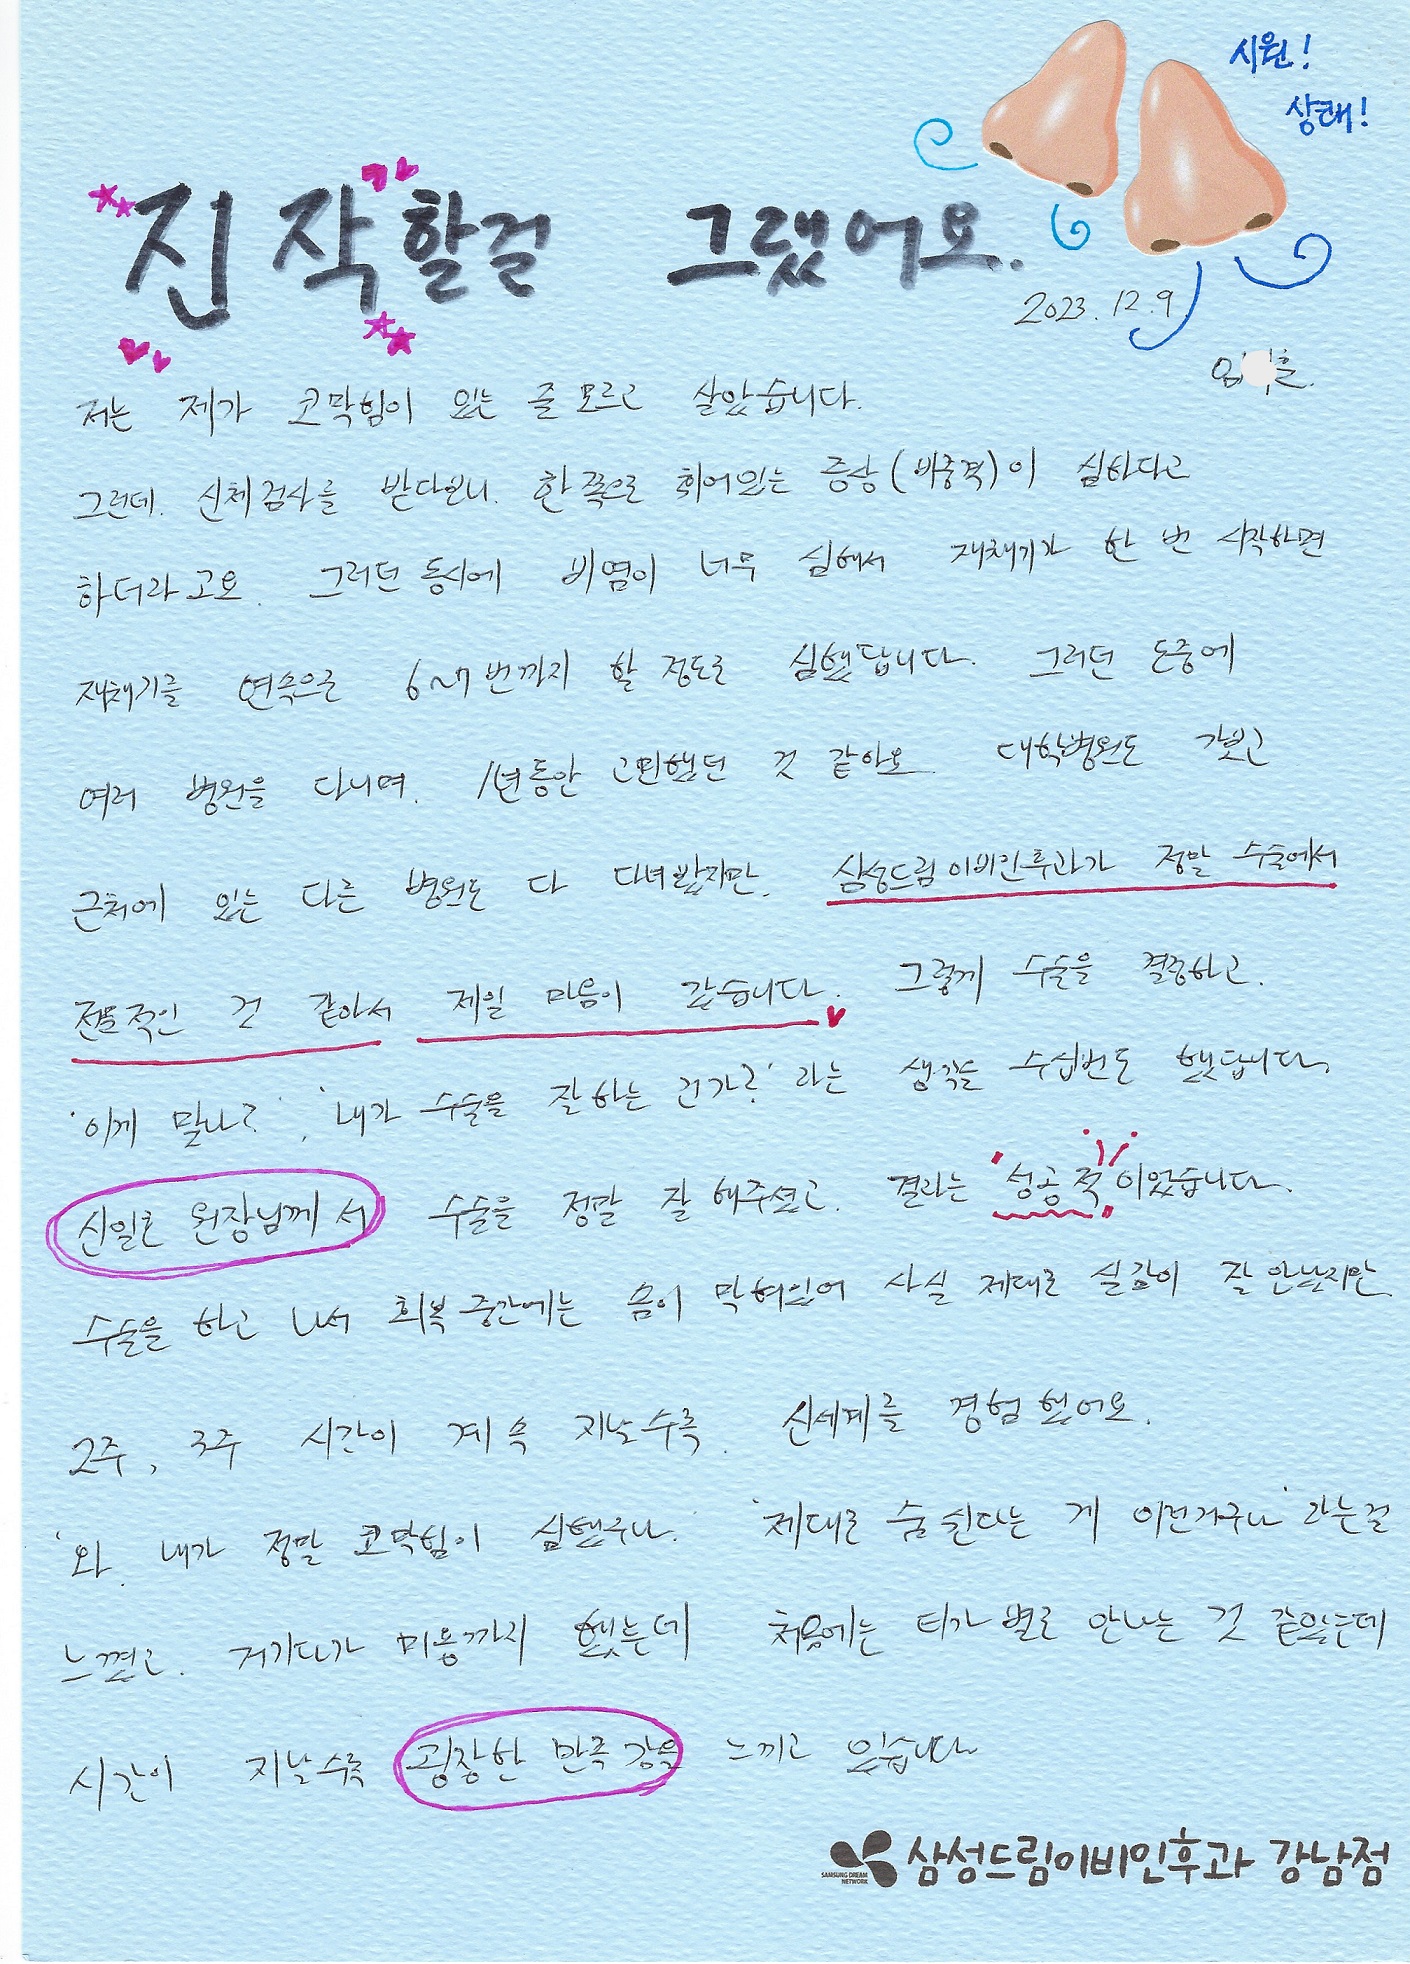 시원!
상쾌!
진작할걸 그랬어요.
2023. 12. 9
임 훈.
저는 제가 코막힘이 있는 줄 모르고 살았습니다.
그런데. 신체검사를 받다보니. 한쪽으로 휘어있는 증상(비중격)이 심하다고
하더라고요. 그러던 동시에 비염이 너무 심해서 재채기가 한 번 시작하면
재채기를 연속으로 6~7번까지 할 정도로 심했답니다. 그러던 도중에
여러 병원을 다니며. 1년동안 고민했던 것 같아요. 대학병원도 가보고
근처에 있는 다른 병원도 다 다녀봤지만. 삼성드림이비인후과가 정말 수술에서
전문적인 것 같아서 제일 마음이 갔습니다. 그렇게 수술을 결정하고.
'이게 맞나?', '내가 수술을 잘하는 건가?' 라는 생각을 수십번도 했답니다.
신일호 원장님께서 수술을 정말 잘 해주셨고. 결과는 '성공적'이었습니다.
수술을 하고 나서 회복 중간에는 솜이 막혀있어 사실 제대로 실감이 잘 안났지만.
2주, 3주 시간이 계속 지날수록. 신세계를 경험했어요.
'와. 내가 정말 코막힘이 심했구나.' '제대로 숨쉰다는 게 이런거구나' 라는걸
느꼈고. 거기다가 미용까지 했는데 처음에는 티가 별로 안나는 것 같았는데
시간이 지날수록 굉장한 만족감을 느끼고 있습니다.
SAMSUNG DREAM NETWORK 삼성드림이비인후과 강남점